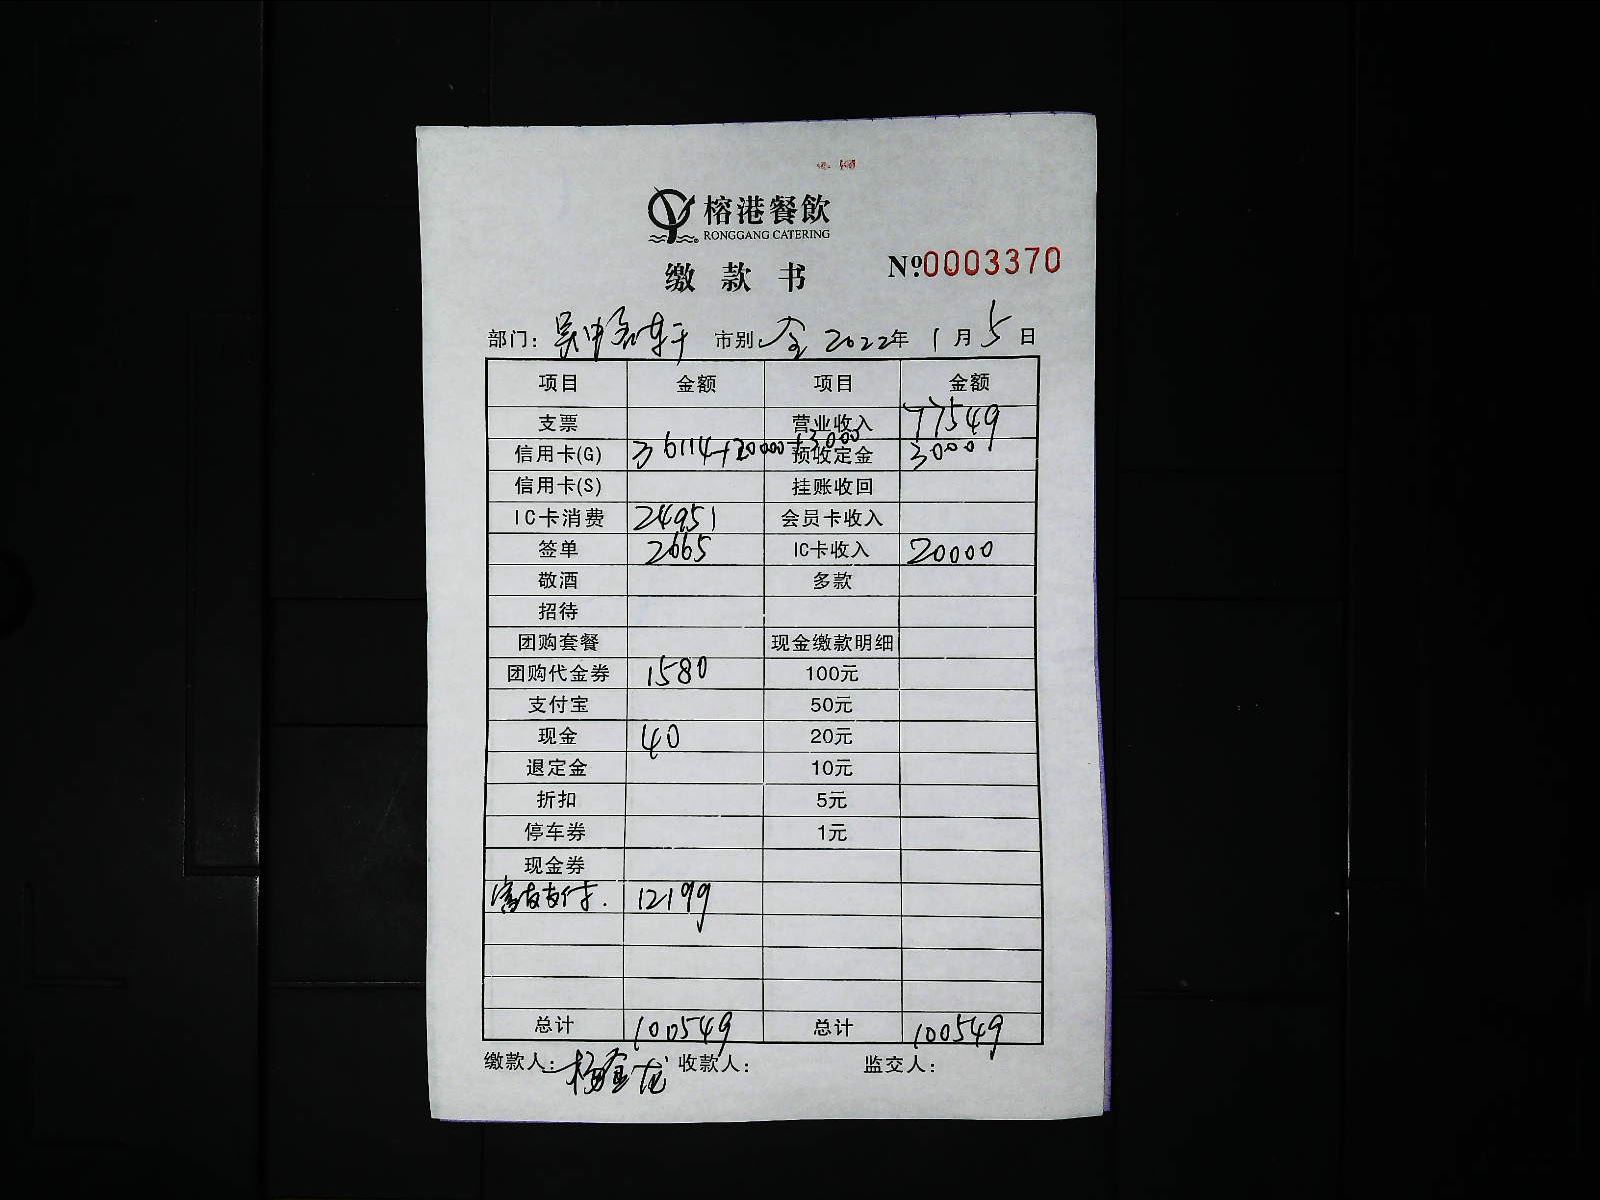 榕港餐飲
RONGGANG CATERING
缴款书
Nº:0003370
部门: 市别 全 2022年 1月5日
项目 金额 项目 金额
支票 营业收入 77549
信用卡(G) 36114+20000+3000 预收定金 3000
信用卡(S) 挂账收回
IC卡消费 24951 会员卡收入
签单 2665 IC卡收入 20000
敬酒 多款
招待
团购套餐 现金缴款明细
团购代金券 1580 100元
支付宝 50元
现金 40 20元
退定金 10元
折扣 5元
停车券 1元
现金券
富友支付. 12199
总计 100549 总计 100549
缴款人: 杨金龙 收款人: 监交人: